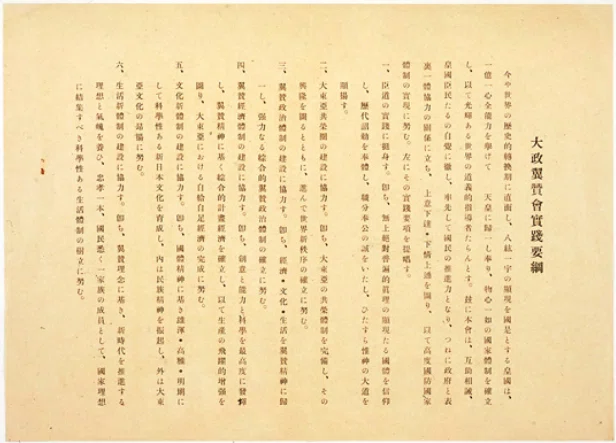 大政翼賛會實踐要綱
今や世界の歴史的轉換期に直面し、八紘一宇の顯現を國是とする皇國は、
一億一心全能力を擧げて 天皇に歸一し奉り、物心一如の國家體制を確立
し、以て光輝ある世界の道義的指導者たらんとす。玆に本會は、互助相誡、
皇國臣民たるの自覺に徹し、率先して國民の推進力となり、つねに政府と表
裏一體協力の關係に立ち、上意下達・下情上通を圖り、以て高度國防國家
體制の實現に努む。左にその實踐要項を提唱す。
一、臣道の實踐に挺身す。卽ち、無上絕對普遍的眞理の顯現たる國體を信仰
し、歷代詔勅を奉體し、職分奉公の誠をいたし、ひたすら惟神の大道を
顯揚す。
二、大東亞共榮圈の建設に協力す。卽ち、大東亞の共榮體制を完備し、その
興隆を圖るとともに、進んで世界新秩序の確立に努む。
三、翼賛政治體制の建設に協力す。卽ち、經濟・文化・生活を翼賛精神に歸
一し、强力なる綜合的翼賛政治體制の確立に努む。
四、翼賛經濟體制の建設に協力す。卽ち、創意と能力と科學を最高度に發揮
し、翼賛精神に基く綜合的計畫經濟を確立し、以て生產の飛躍的增强を
圖り、大東亞における自給自足經濟の完成に努む。
五、文化新體制の建設に協力す。卽ち、國體精神に基き雄渾・高雅・明朗に
して科學性ある新日本文化を育成し、內は民族精神を振起し、外は大東
亞文化の昂揚に努む。
六、生活新體制の建設に協力す。卽ち、翼賛理念に基き、新時代を推進する
理想と氣魄を養ひ、忠孝一本、國民悉く一家族の成員として、國家理想
に結集すべき科學性ある生活體制の樹立に努む。